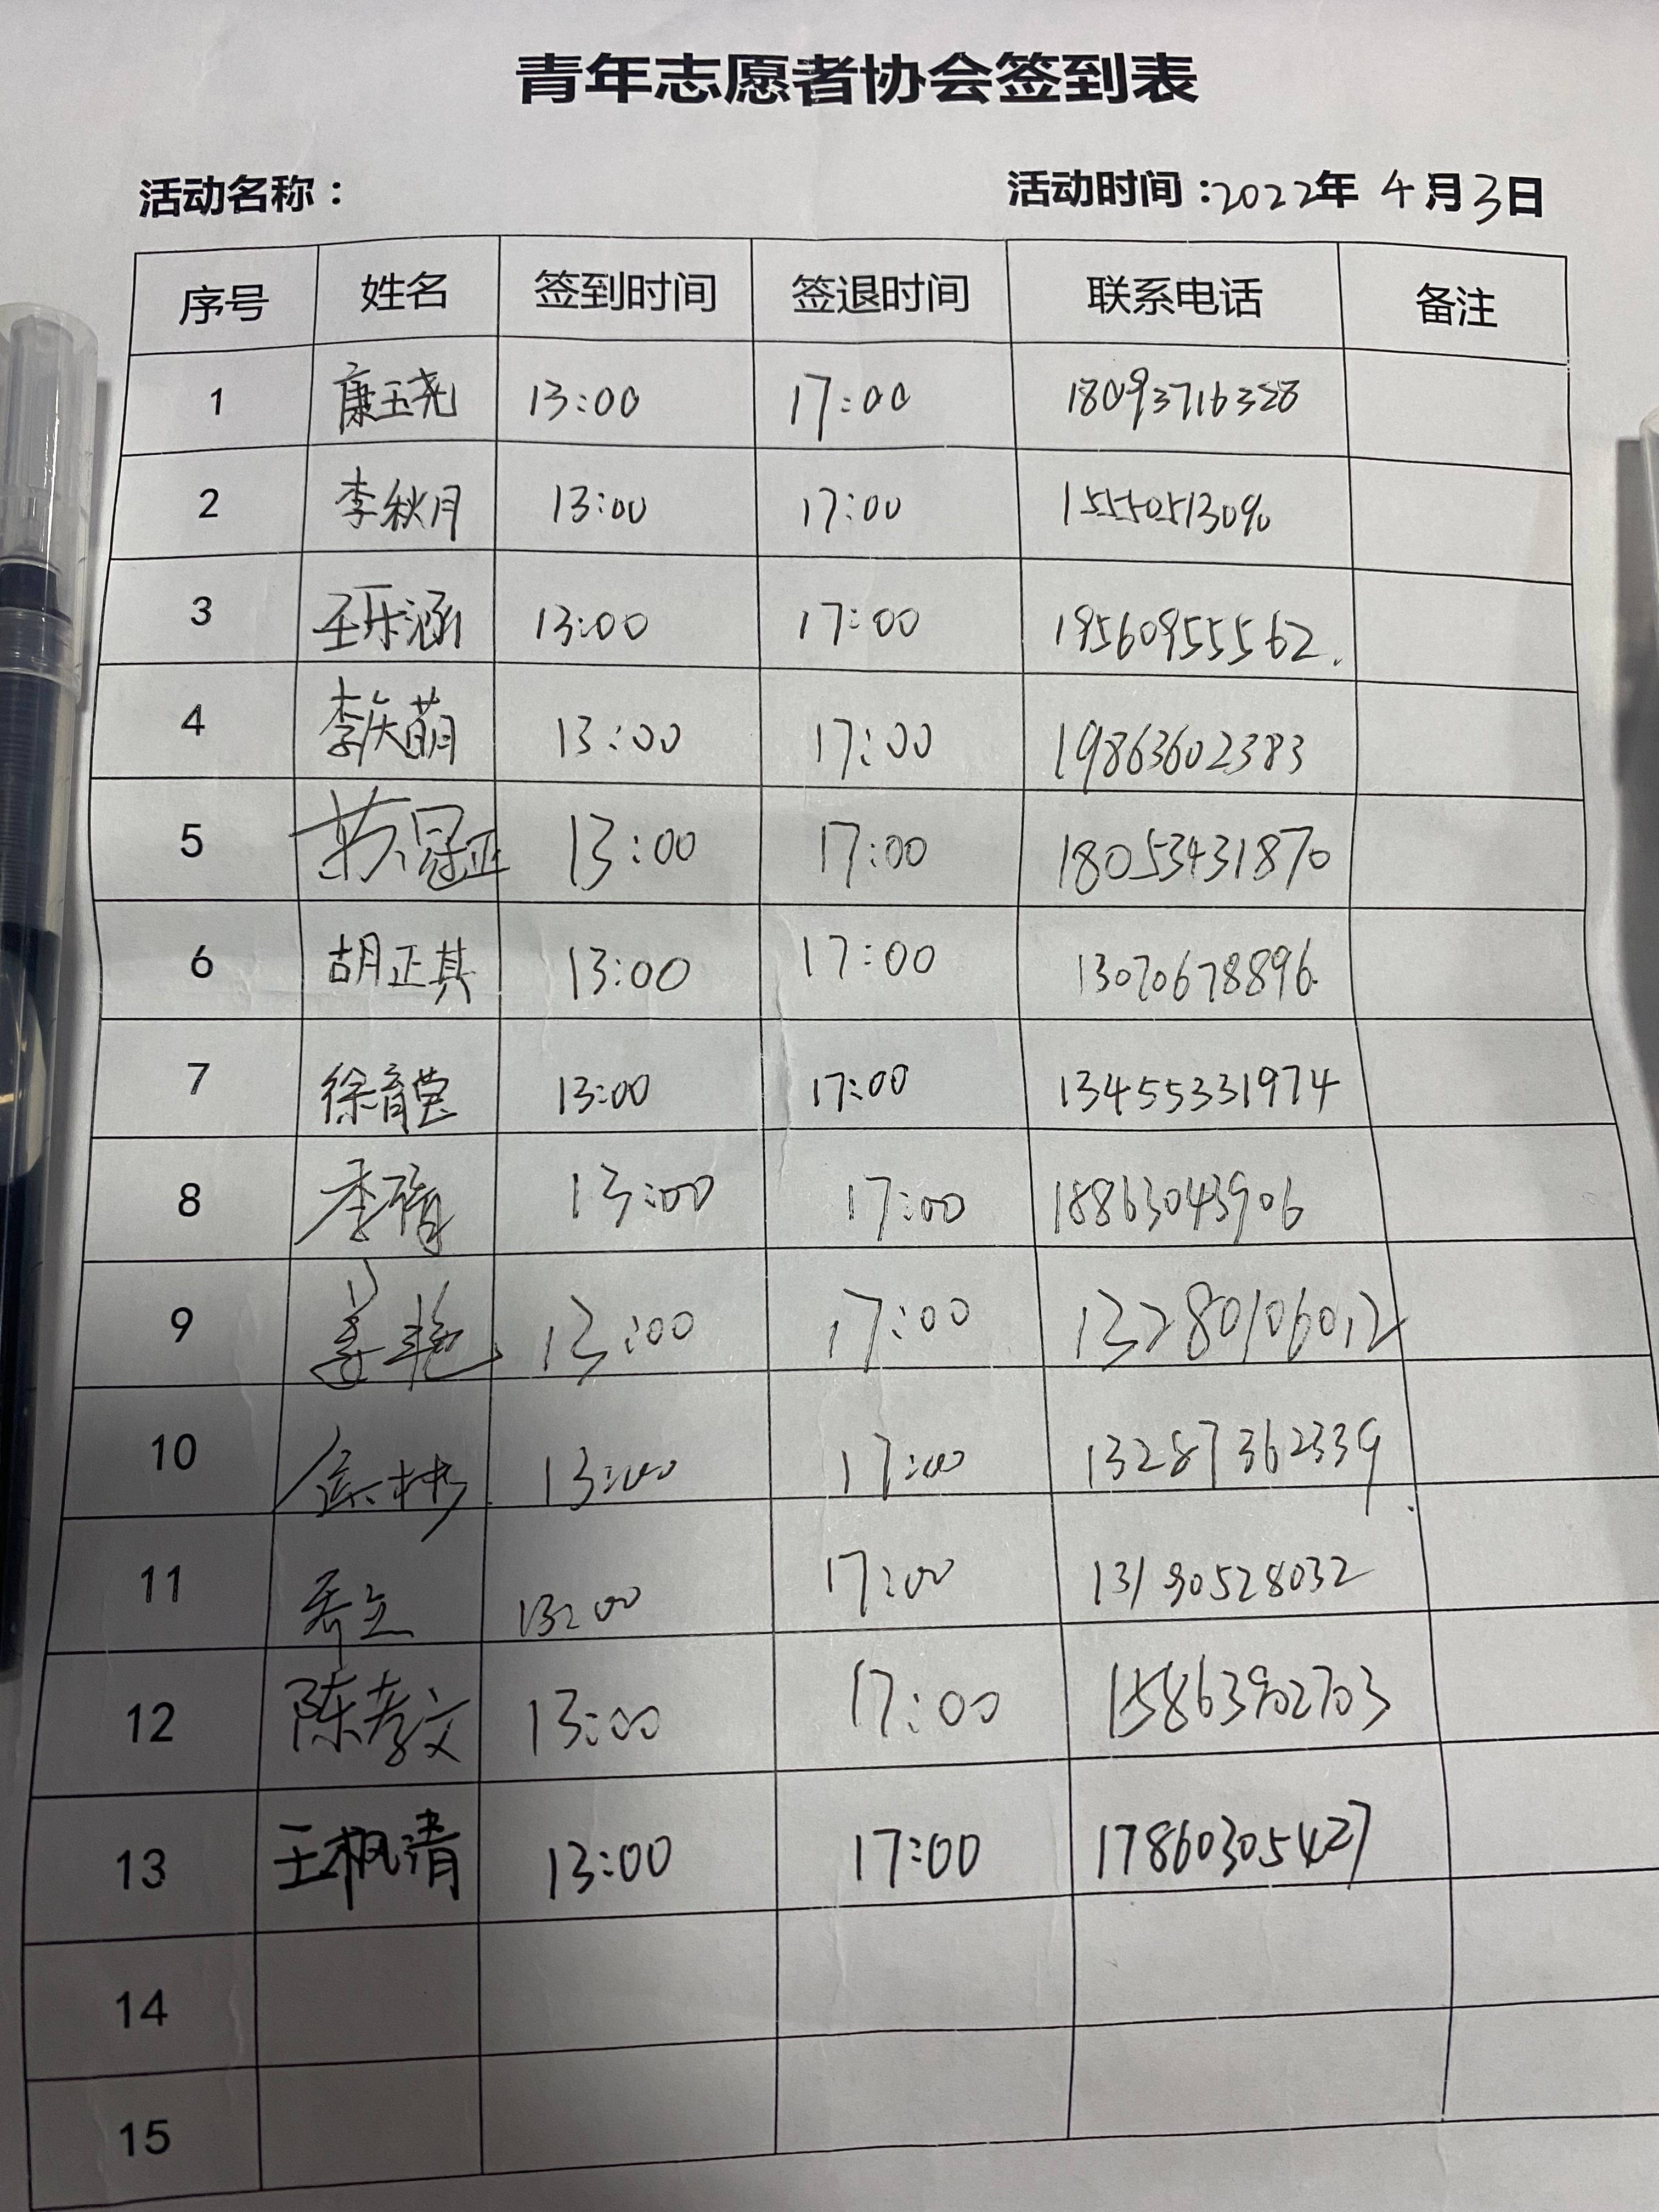 青年志愿者协会签到表
活动名称： 活动时间：2022年 4月3日
序号 姓名 签到时间 签退时间 联系电话 备注
1 康玉尧 13:00 17:00 18093716328
2 李秋月 13:00 17:00 15550513090
3 王乐涵 13:00 17:00 19560955562.
4 李庆萌 13:00 17:00 19863602383
5 苏冠正 13:00 17:00 18053431870
6 胡正其 13:00 17:00 13070678896.
7 徐育莹 13:00 17:00 13455331974
8 13:00 17:00 18863043906
9 姜艳 13:00 17:00 13280106012
10 13:00 17:00 13287362339
11 13:00 17:00 13190528032
12 陈孝文 13:00 17:00 15863902703
13 王枫清 13:00 17:00 17860305427
14
15